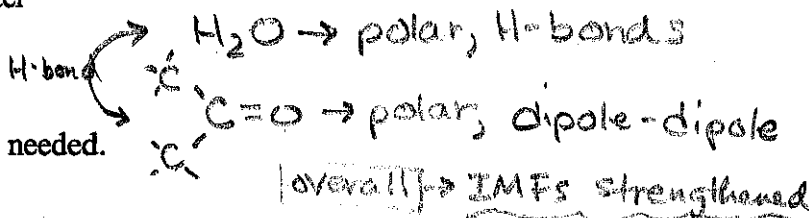 H₂O → polar, H-bonds
H-bond
C
C=O → polar, dipole-dipole
needed.
C
overall → IMFs strengthened